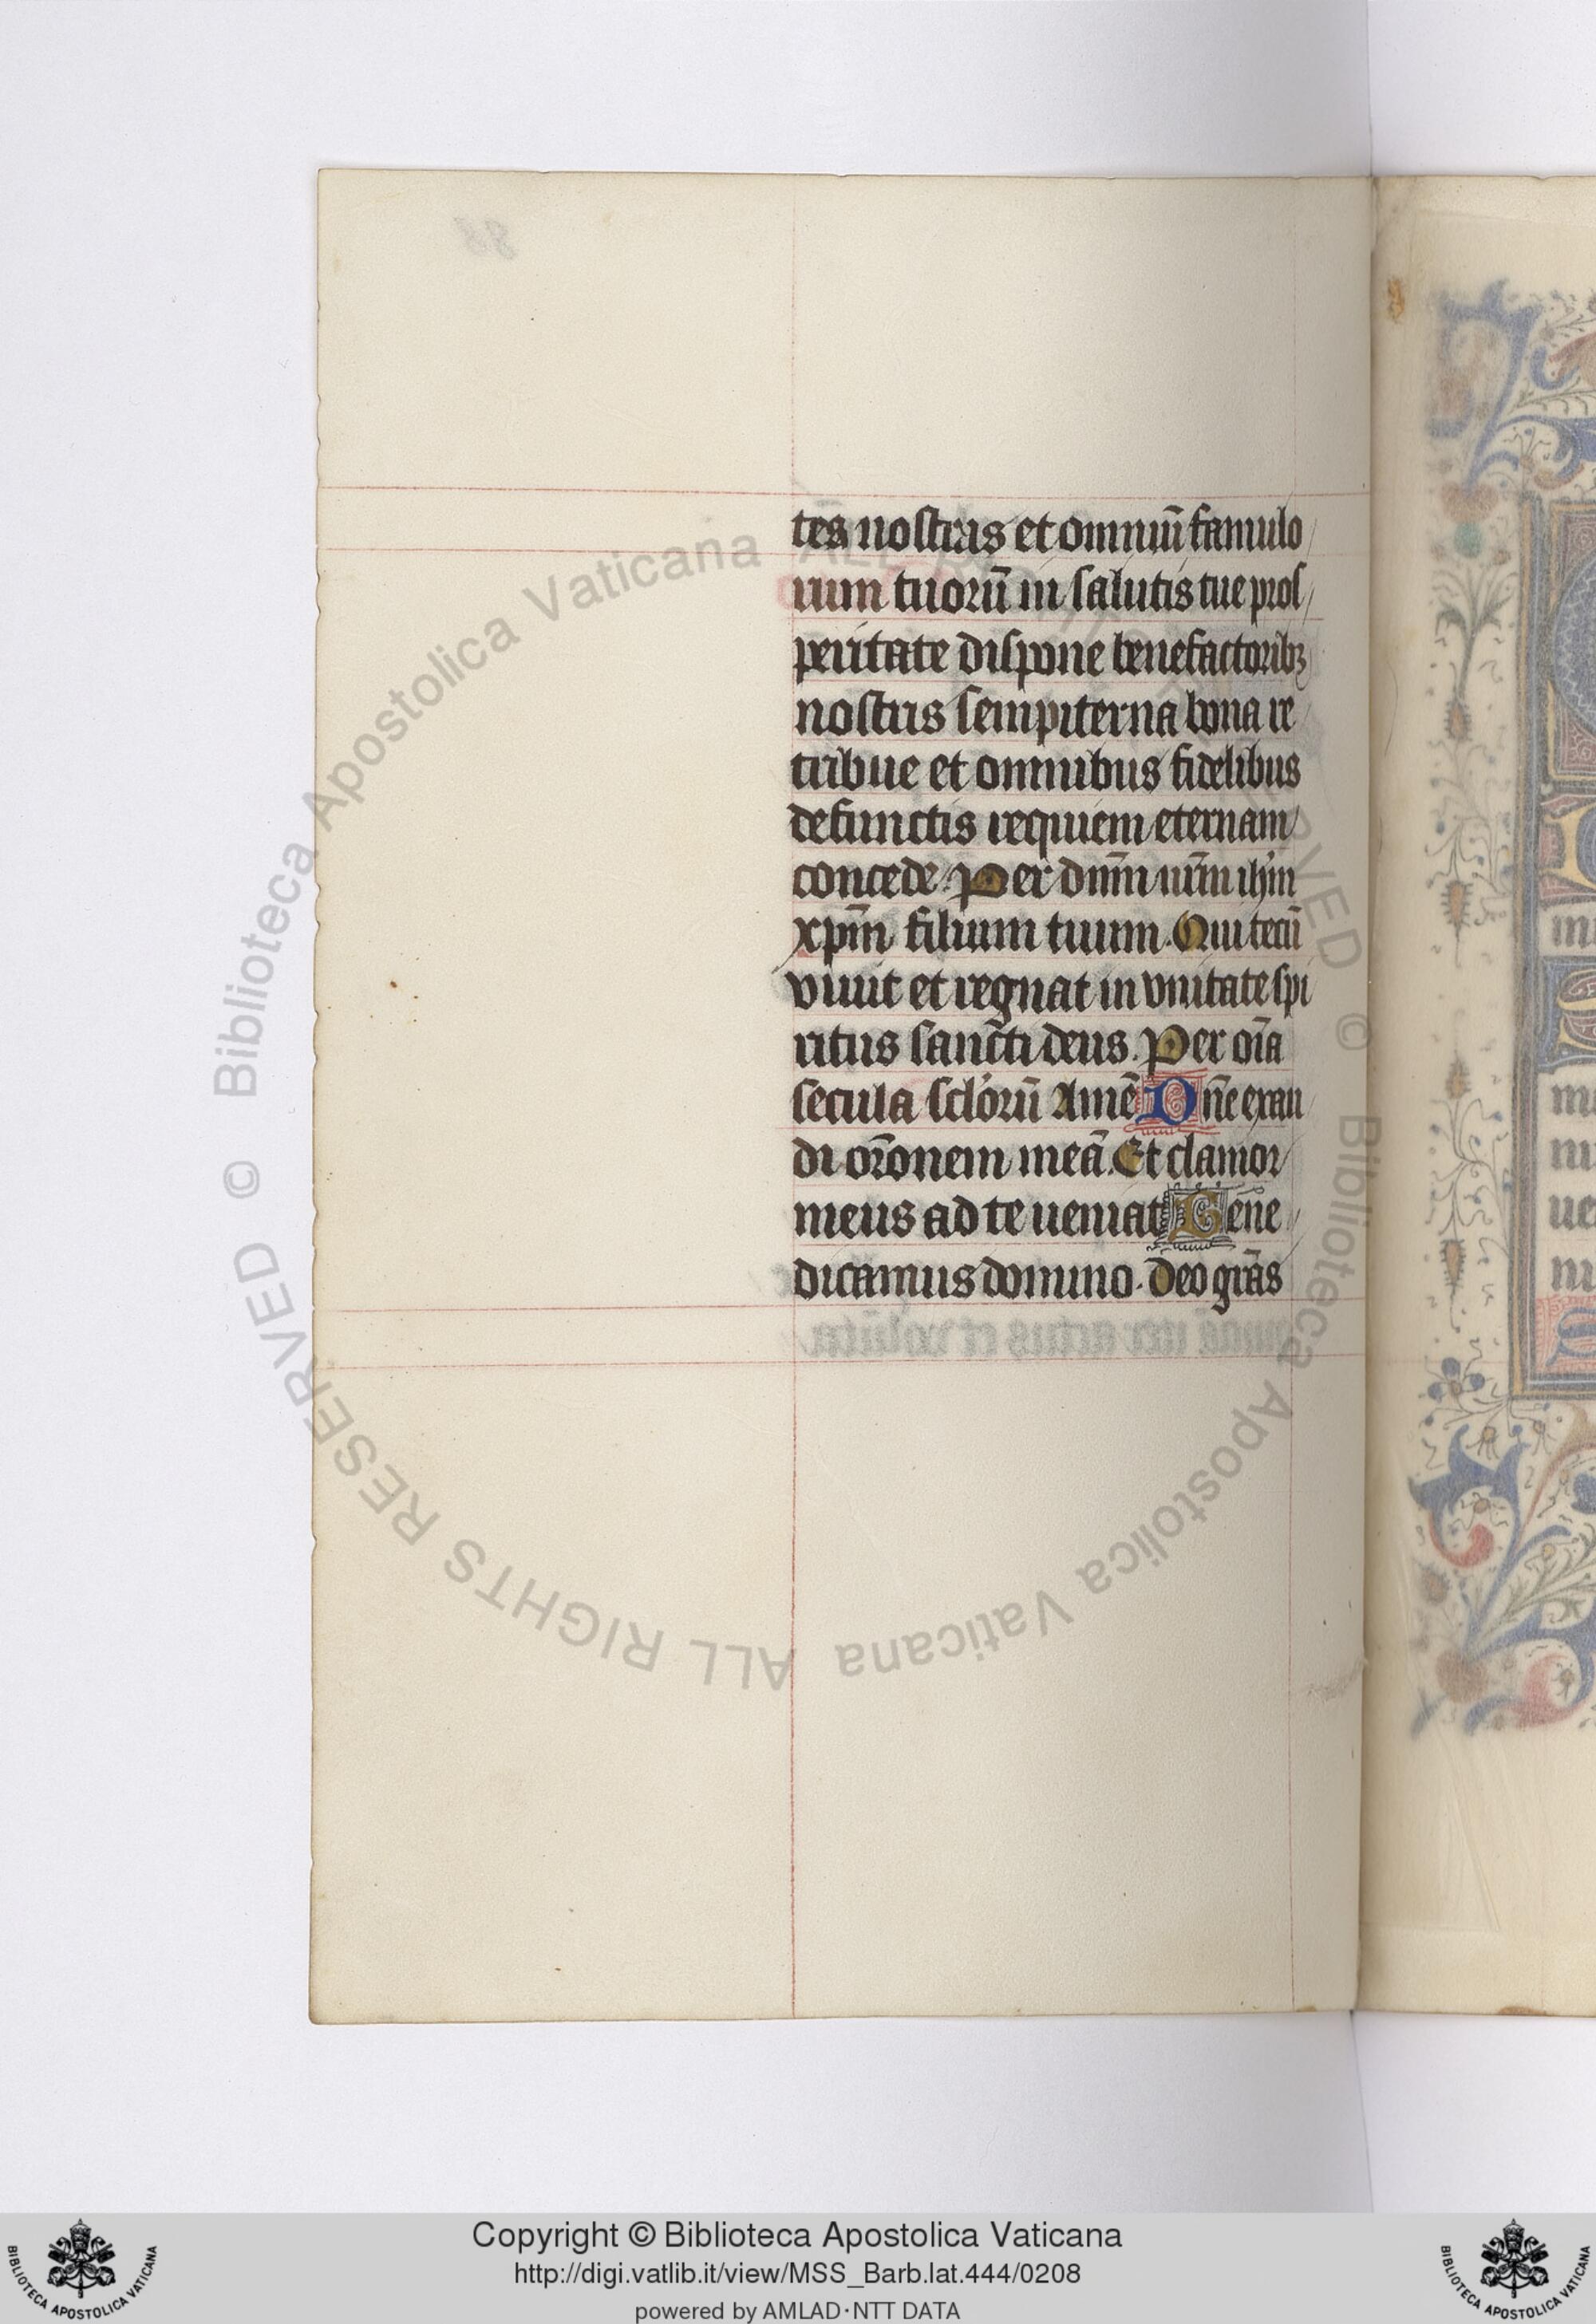 tes nostras et omniū famulo
rum tuorū in salutis tue pros
peritate dispone benefactoribꝫ
nostris sempiterna bona re
tribue et omnibus fidelibus
defunctis requiem eternam
concede. Per dn̄m nr̄m ihm̄
xpm̄ filium tuum. Qui tecū
viuit et regnat in vnitate spi
ritus sancti deus. Per oīa
secula sc̄lorū Amē Dn̄e exau
di or̄onem meā. Et clamor
meus ad te ueniat Bene
dicamus domino. Deo grās
Copyright © Biblioteca Apostolica Vaticana
http://digi.vatlib.it/view/MSS_Barb.lat.444/0208
powered by AMLAD·NTT DATA
© Biblioteca Apostolica Vaticana ALL RIGHTS RESERVED © Biblioteca Apostolica Vaticana ALL RIGHTS RESERVED
BIBLIOTECA APOSTOLICA VATICANA
BIBLIOTECA APOSTOLICA VATICANA